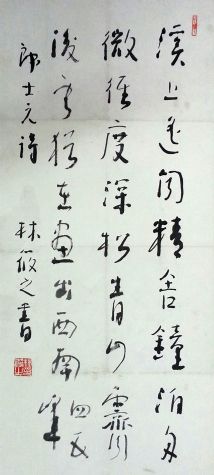 溪上遙聞精舍鐘泊舟
微徑度深松青山霽
後雲猶在畫出西南四五峯
郎士元詩 林筱之書